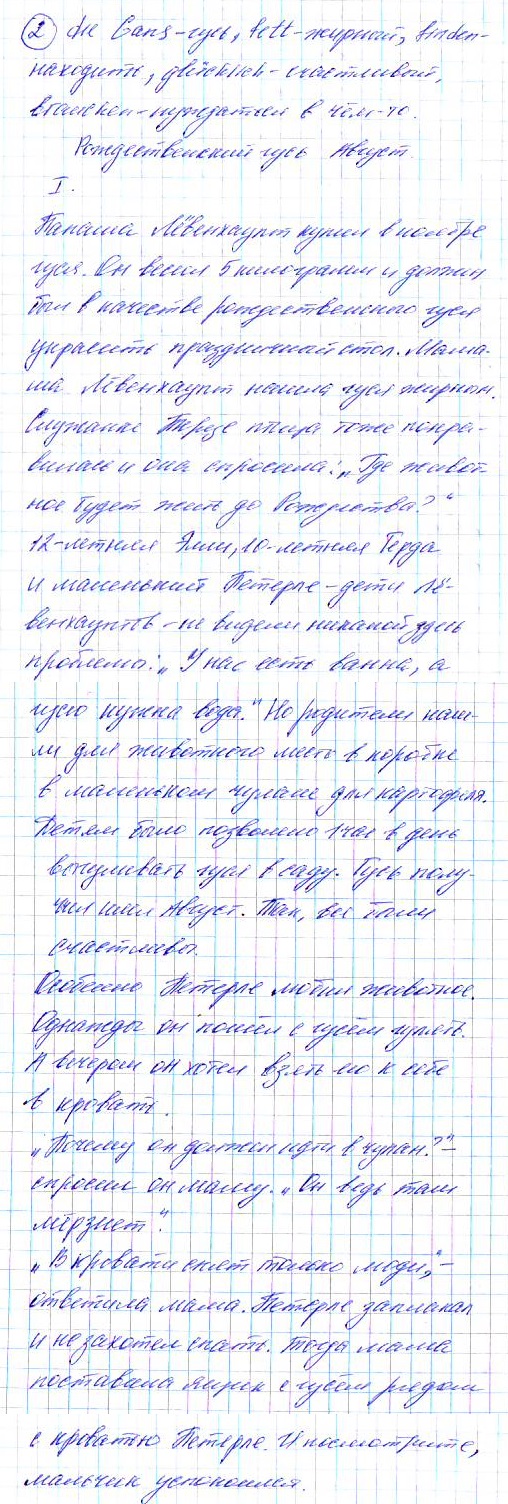 ② die Gans-гусь, fett-жирный, finden-
находить, glücklich-счастливый,
brauchen-нуждаться в чём-то.
Рождественский гусь Август.
I.
Папаша Лёвенхаупт купил в ноябре
гуся. Он весил 5 килограмм и должен
был в качестве рождественского гуся
украсить праздничный стол. Мама-
ша Лёвенхаупт нашла гуся жирным.
Служанке Терезе птица тоже понра-
вилась и она спросила: „Где живот-
ное будет жить до Рождества?“
12-летняя Элли, 10-летняя Герда
и маленький Петерле-дети Лё-
венхауптов-не видели никакой здесь
проблемы: „У нас есть ванна, а
гусю нужна вода.“ Но родители наш-
ли для животного место в коробке
в маленьком чулане для картофеля.
Детям было позволено 1 час в день
выгуливать гуся в саду. Гусь полу-
чил имя Август. Так, все были
счастливы.
Особенно Петерле любил животное.
Однажды он пошёл с гусём гулять.
А вечером он хотел взять его к себе
в кровать.
„Почему он должен идти в чулан?“-
спросил он маму. „Он ведь там
мёрзнет“.
„В кровати спят только люди,“-
ответила мама. Петерле заплакал
и не захотел спать. Тогда мама
поставила ящик с гусём рядом
с кроватью Петерле. И посмотрите,
мальчик успокоился.